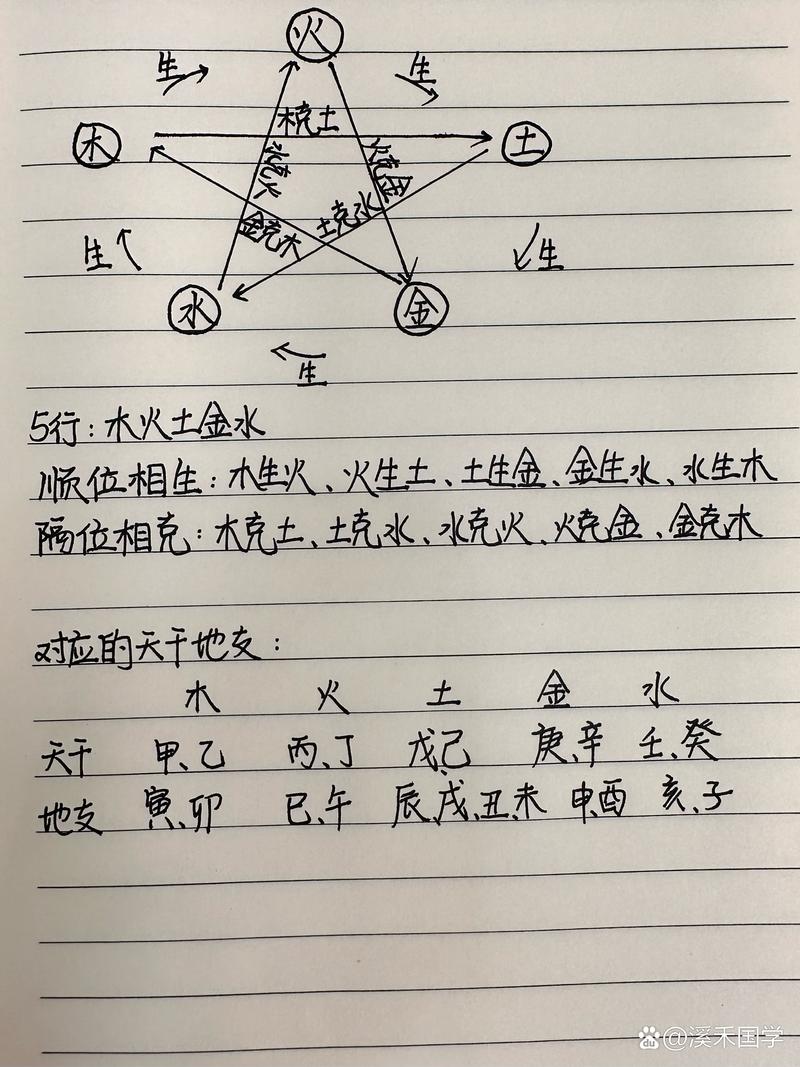 火
生 生
木 木克土 土
水克火 火克金
金克木 土克水
生 生
水 金
生
5行：木火土金水
顺位相生：木生火、火生土、土生金、金生水、水生木
隔位相克：木克土、土克水、水克火、火克金、金克木
对应的天干地支：
木 火 土 金 水
天干 甲、乙 丙、丁 戊、己 庚、辛 壬、癸
地支 寅、卯 巳、午 辰、戌、丑、未 申、酉 亥、子
Bai du @溪禾国学